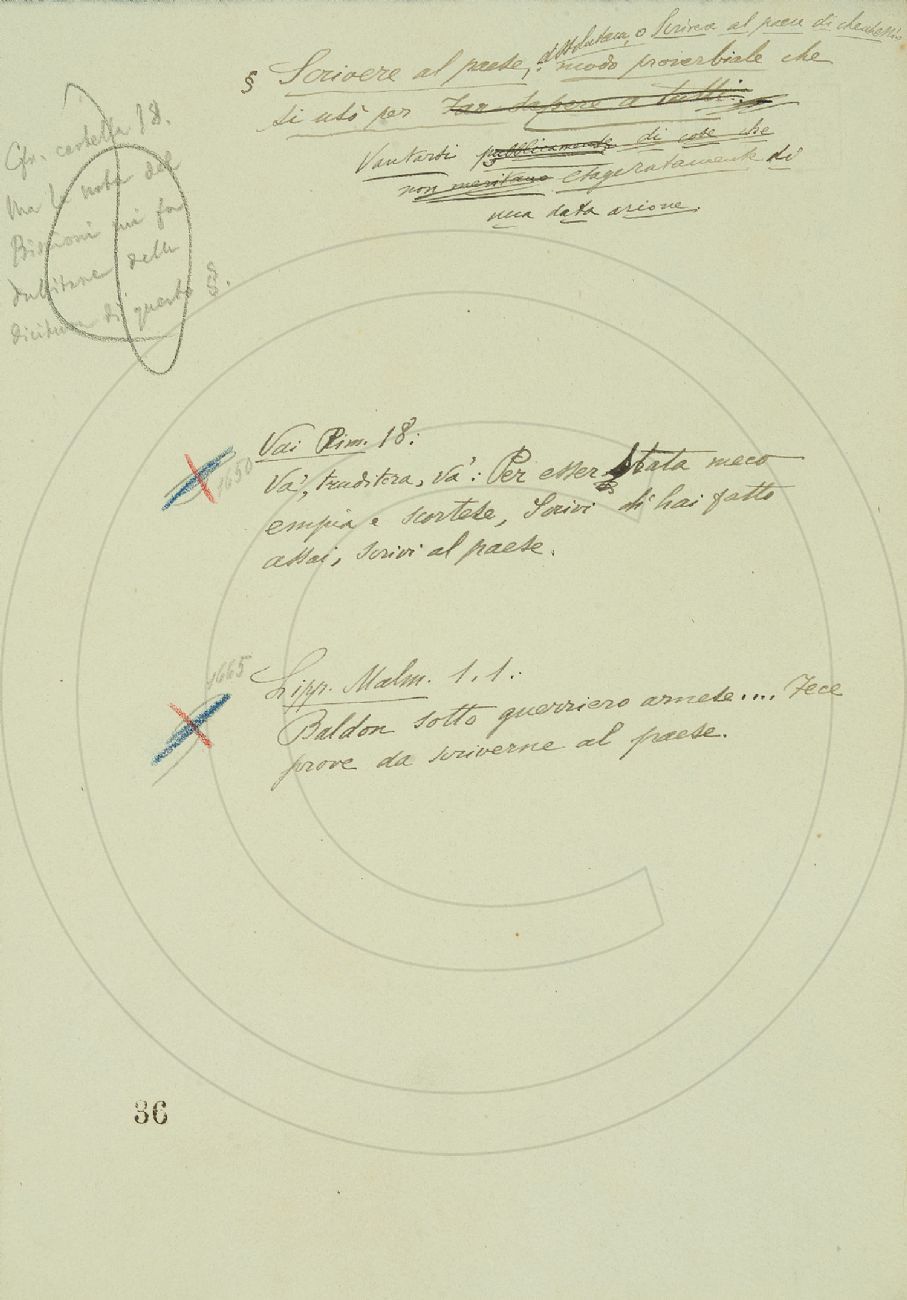 assolutam., o Scriver al paese di chechessia
§ Scrivere al paese, modo proverbiale che
si usò per Far sapere a tutti...
Vantarsi pubblicamente di cose che
non meritano esageratamente di
una data azione.
Cfr. cartella 18.
Ma la nota del
Biscioni mi fa
dubitare della
dicitura di questo §.
Vai Rim. 18:
1650
Va', traditora, va': Per esser stata meco
empia e scortese, Scrivi ch'hai fatto
assai, scrivi al paese.
1665
Lipp. Malm. 1. 1.:
Baldon sotto guerriero arnese.... Fece
prove da scriverne al paese.
36